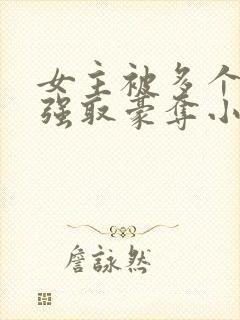 女主被多个
强取豪夺小
詹詠然